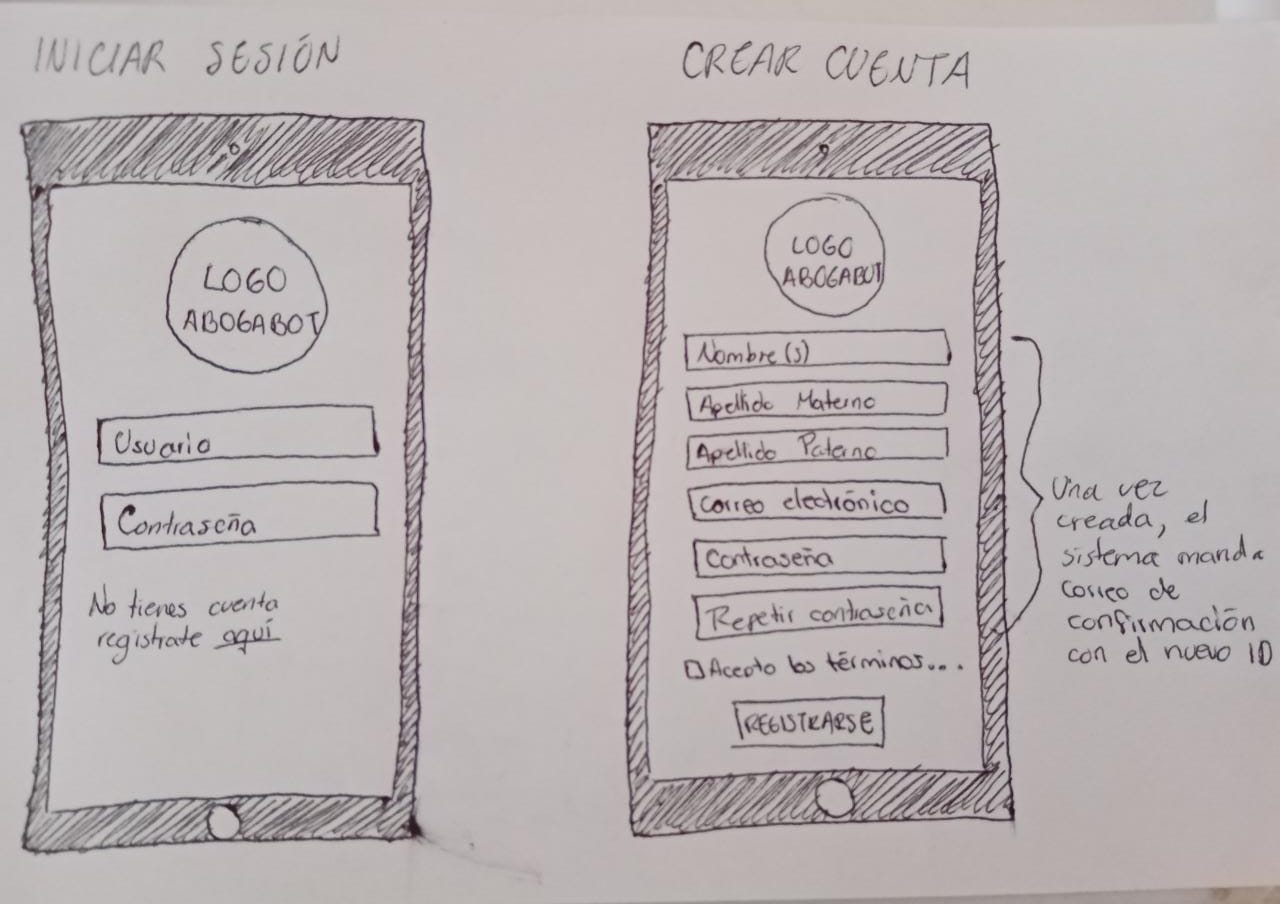 INICIAR SESIÓN
LOGO
ABOGABOT
Usuario
Contraseña
No tienes cuenta
registrate aquí
CREAR CUENTA
LOGO
ABOGABOT
Nombre(s)
Apellido Materno
Apellido Paterno
Correo electrónico
Contraseña
Repetir contraseña
Acepto los términos...
REGISTRARSE
Una vez
creada, el
sistema manda
correo de
confirmación
con el nuevo ID